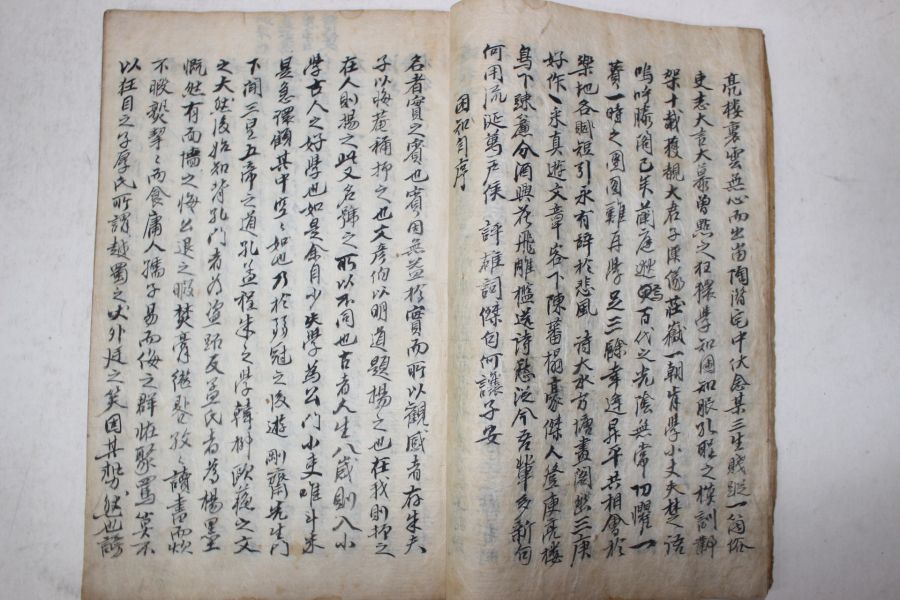 亮樓裏雲無心而出岫陶潛宅中伏念某三生賤蹤一
更志大言大慕曾點之狂擐學知困知服孔聖之
架十載獲覩大君子漢儀莊嶽一朝肯學小丈夫楚語
嗚呼滕閣已矣蘭庭逝矣百代之光陰無常切懼一
簣一時之團圓難再學足三餘幸逢昇平共相會於
樂地各賦短引永有辭於悲風 詩大水方塘畫閣然三庚
好作丶来真遊文章客下陳蕃榻豪傑人登庾亮樓
鳥下踈簾分酒興花飛雕檻送詩愁從今吾輩多新句
何用流涎萬戶侯 評雄詞傑句何讓子安
困知句序
名者實之賓也賓固無益於實而所以觀感者存朱夫
子以晦菴稱抑之也文彥伯以明道題揚之也在我則抑之
在人則揚之此又名號之所以不同也古者人生八歲則入小
學古人之好學也如是余自少失學為公門小吏唯斗米
是急譯顧其中空丶如也乃於弱冠之後遊剛齋先生門
下聞三皇五帝之道孔孟程朱之學韓柳歐蘇之文
之大然後始知背孔門者為篁頭反孟氏者為楊墨
慨然有面墻之悔公退之暇焚膏繼晷孜丶讀書而炊
不暇爨挈丶而食庸人孺子易而侮之群怪聚罵莫不
以狂目之子厚氏所謂越蜀之犬外廷之笑固其勢然也